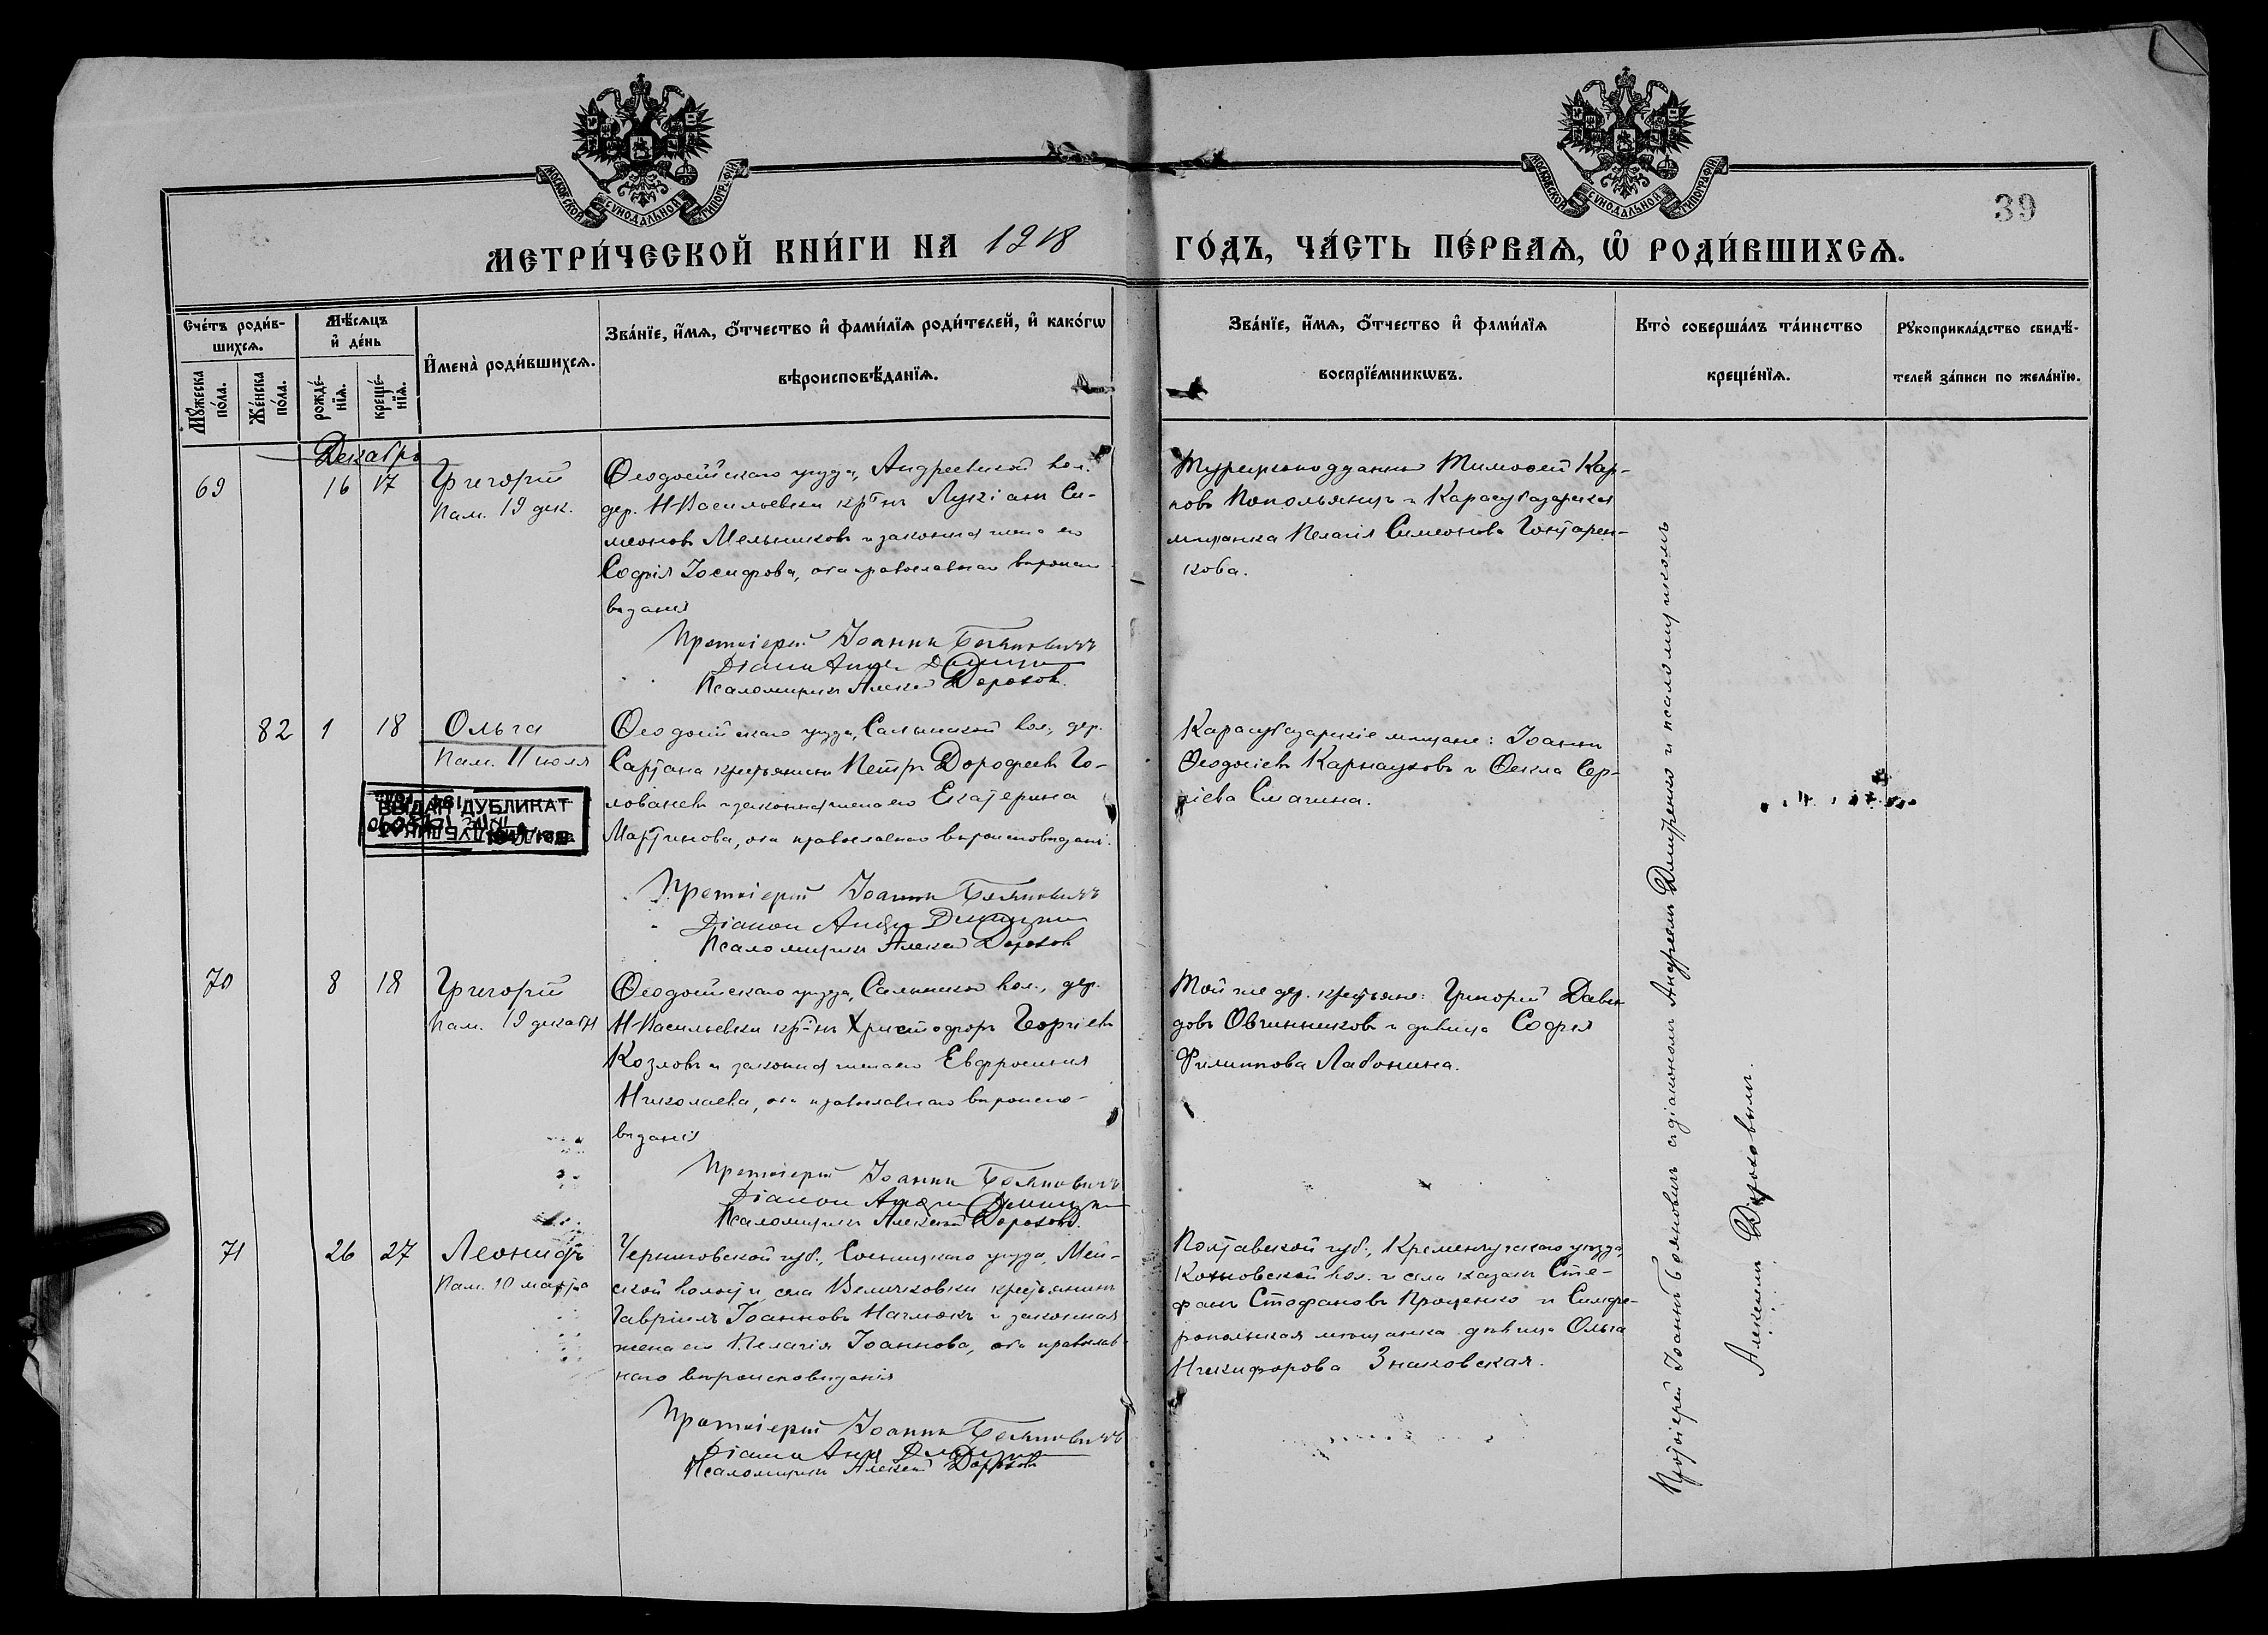 МОСКОВСКОЙ СѴНОДАЛЬНОЙ ТИПОГРАФІИ
МОСКОВСКОЙ СѴНОДАЛЬНОЙ ТИПОГРАФІИ
39
МЕТРИ́ЧЕСКОЙ КНИ́ГИ НА 1918
ГО́ДЪ, ЧА́СТЬ ПЕ́РВАѦ, Ѡ҆ РОДИ́ВШИХСѦ.
Сче́тъ роди́в-
шихсѧ.
Мꙋ́жеска по́ла.
Же́нска по́ла.
Мѣ́сѧцъ
и҆ де́нь
рожде́-
нїѧ.
креще́-
нїѧ.
И҆мена̀ роди́вшихсѧ.
Зва́нїе, и҆́мѧ, ѻ҆́тчество и҆ фами́лїѧ роди́телей, и҆ како́гѡ
вѣроисповѣ́данїѧ.
Зва́нїе, и҆́мѧ, ѻ҆́тчество и҆ фами́лїѧ
воспрїе́мникѡвъ.
Кто̀ соверша́лъ та́инство
креще́нїѧ.
Рꙋкоприкла́дство свидѣ́-
телей за́писи по жела́нїю.
Декабрь
69
16 17
Григорій
Пам. 19 дек.
Ѳеодосійскаго уѣзда, Андреевской вол.
дер. Н-Васильевки кр-нъ Лукіанъ Си-
меоновъ Мельниковъ и законная жена его
Софія Іосифова, оба православнаго вѣроиспо-
вѣданія
Протоіерей Іоаннъ Бояновичъ
Діаконъ Андрей
Псаломщикъ Алексѣй Дороховъ
Турецкоподданный Тимоѳей Кар-
повъ Попольянцъ и Карасубазарская
мѣщанка Пелагія Симеонова Гонтарен-
кова.
82 1 18
Ольга
Пам. 11 июля
ВЫДАН ДУБЛИКАТ
Ѳеодосійскаго уѣзда, Салынской вол., дер.
Сартана крестьянинъ Петръ Дорофеевъ Го-
лованевъ и законная жена его Екатерина
Мартинова, оба православнаго вѣроисповѣдані.
Протоіерей Іоаннъ Бояновичъ
Діаконъ Андрей
Псаломщикъ Алексѣй Дороховъ
Карасубазарскіе мѣщане: Іоаннъ
Ѳеодосіевъ Карнауховъ и Ѳекла Сер-
гіева Смагина.
70 8 18
Григорій
Пам. 19 декабря
Ѳеодосійскаго уѣзда, Салынской вол., дер.
Н-Васильевки кр-нъ Христофоръ Георгіевъ
Козловъ и законная жена его Евфросинія
Николаева, оба православнаго вѣроиспо-
вѣданія
Протоіерей Іоаннъ Бояновичъ
Діаконъ Андрей
Псаломщикъ Алексѣй Дороховъ.
Той же дер. крестьяне: Григорій Давы-
довъ Овчинниковъ и дѣвица Софія
Филиппова Лабонина.
71 26 27
Леонидъ
Пам. 10 марта
Черниговской губ., Сосницкаго уѣзда, Мен-
ской волости села Величковки крестьянинъ
Гавріилъ Іоанновъ Нагмокъ и законная
жена его Пелагія Іоаннова, оба православ-
наго вѣроисповѣданія
Протоіерей Іоаннъ Бояновичъ
Діаконъ Андрей
Псаломщикъ Алексѣй Дороховъ
Полтавской губ., Кременчугскаго уѣзда,
вол. и села казакъ Сте-
фанъ Стефановъ Проценко и Симфе-
ропольская мѣщанка дѣвица Ольга
Никифорова Знаковская.
Протоіерей Іоаннъ Бояновичъ съ діакономъ Андреемъ Дмитренко и псаломщикомъ
Алексѣемъ Дороховымъ.